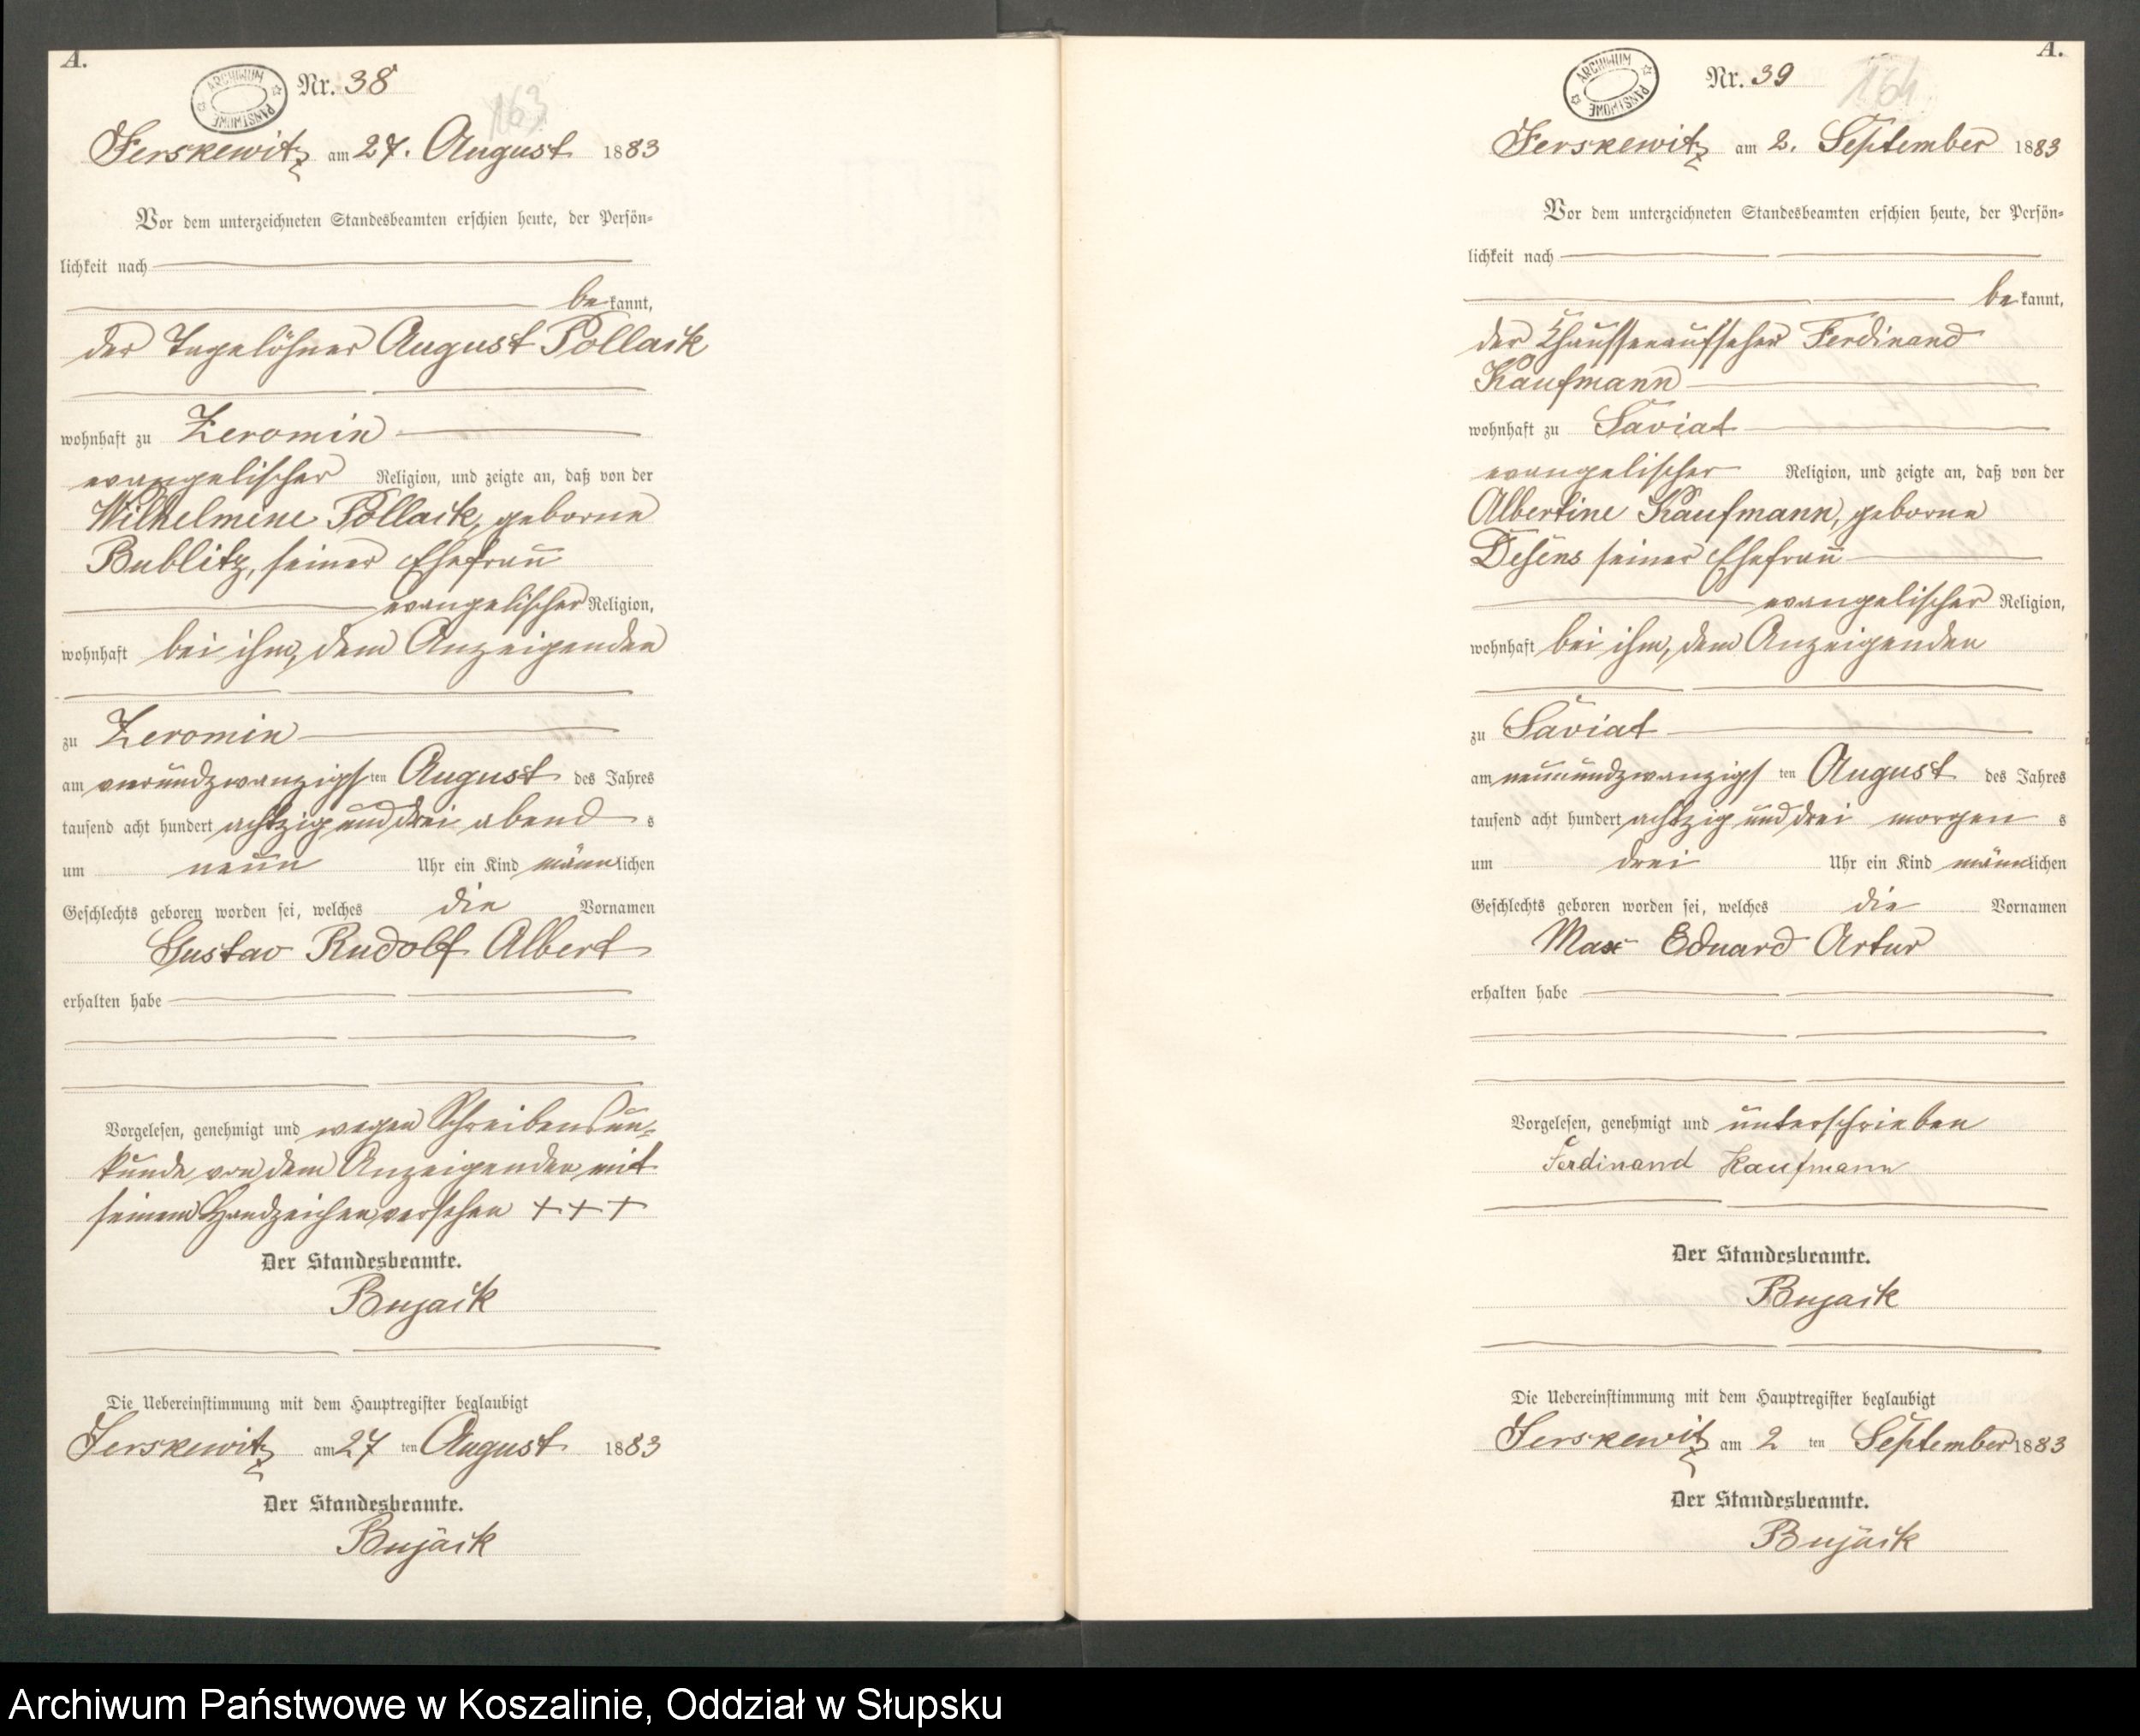 A.
ARCHIWUM PAŃSTWOWE
Nr. 38
163
Jerskewitz am 27. August 1883
Vor dem unterzeichneten Standesbeamten erschien heute, der Persön-
lichkeit nach
bekannt,
der Tagelöhner August Pollack
wohnhaft zu Zeromin
evangelischer Religion, und zeigte an, daß von der
Wilhelmine Pollack, geborne
Bublitz, seiner Ehefrau
evangelischer Religion,
wohnhaft bei ihm, dem Anzeigenden
zu Zeromin
am vierundzwanzigsten August des Jahres
tausend acht hundert achtzig und drei abends
um neun Uhr ein Kind männlichen
Geschlechts geboren worden sei, welches die Vornamen
Gustav Rudolf Albert
erhalten habe
Vorgelesen, genehmigt und wegen Schreibensun-
kunde von dem Anzeigenden mit
seinem Handzeichen versehen + + +
Der Standesbeamte.
Bujack
Die Uebereinstimmung mit dem Hauptregister beglaubigt
Jerskewitz am 27 ten August 1883
Der Standesbeamte.
Bujack
A.
ARCHIWUM PAŃSTWOWE
Nr. 39
164
Jerskewitz am 2. September 1883
Vor dem unterzeichneten Standesbeamten erschien heute, der Persön-
lichkeit nach
bekannt,
der Chausseeaufseher Ferdinand
Kaufmann
wohnhaft zu Saviat
evangelischer Religion, und zeigte an, daß von der
Albertine Kaufmann, geborne
Desens seiner Ehefrau
evangelischer Religion,
wohnhaft bei ihm, dem Anzeigenden
zu Saviat
am neunundzwanzigsten August des Jahres
tausend acht hundert achtzig und drei morgens
um drei Uhr ein Kind männlichen
Geschlechts geboren worden sei, welches die Vornamen
Max Eduard Artur
erhalten habe
Vorgelesen, genehmigt und unterschrieben
Ferdinand Kaufmann
Der Standesbeamte.
Bujack
Die Uebereinstimmung mit dem Hauptregister beglaubigt
Jerskewitz am 2 ten September 1883
Der Standesbeamte.
Bujack
Archiwum Państwowe w Koszalinie, Oddział w Słupsku